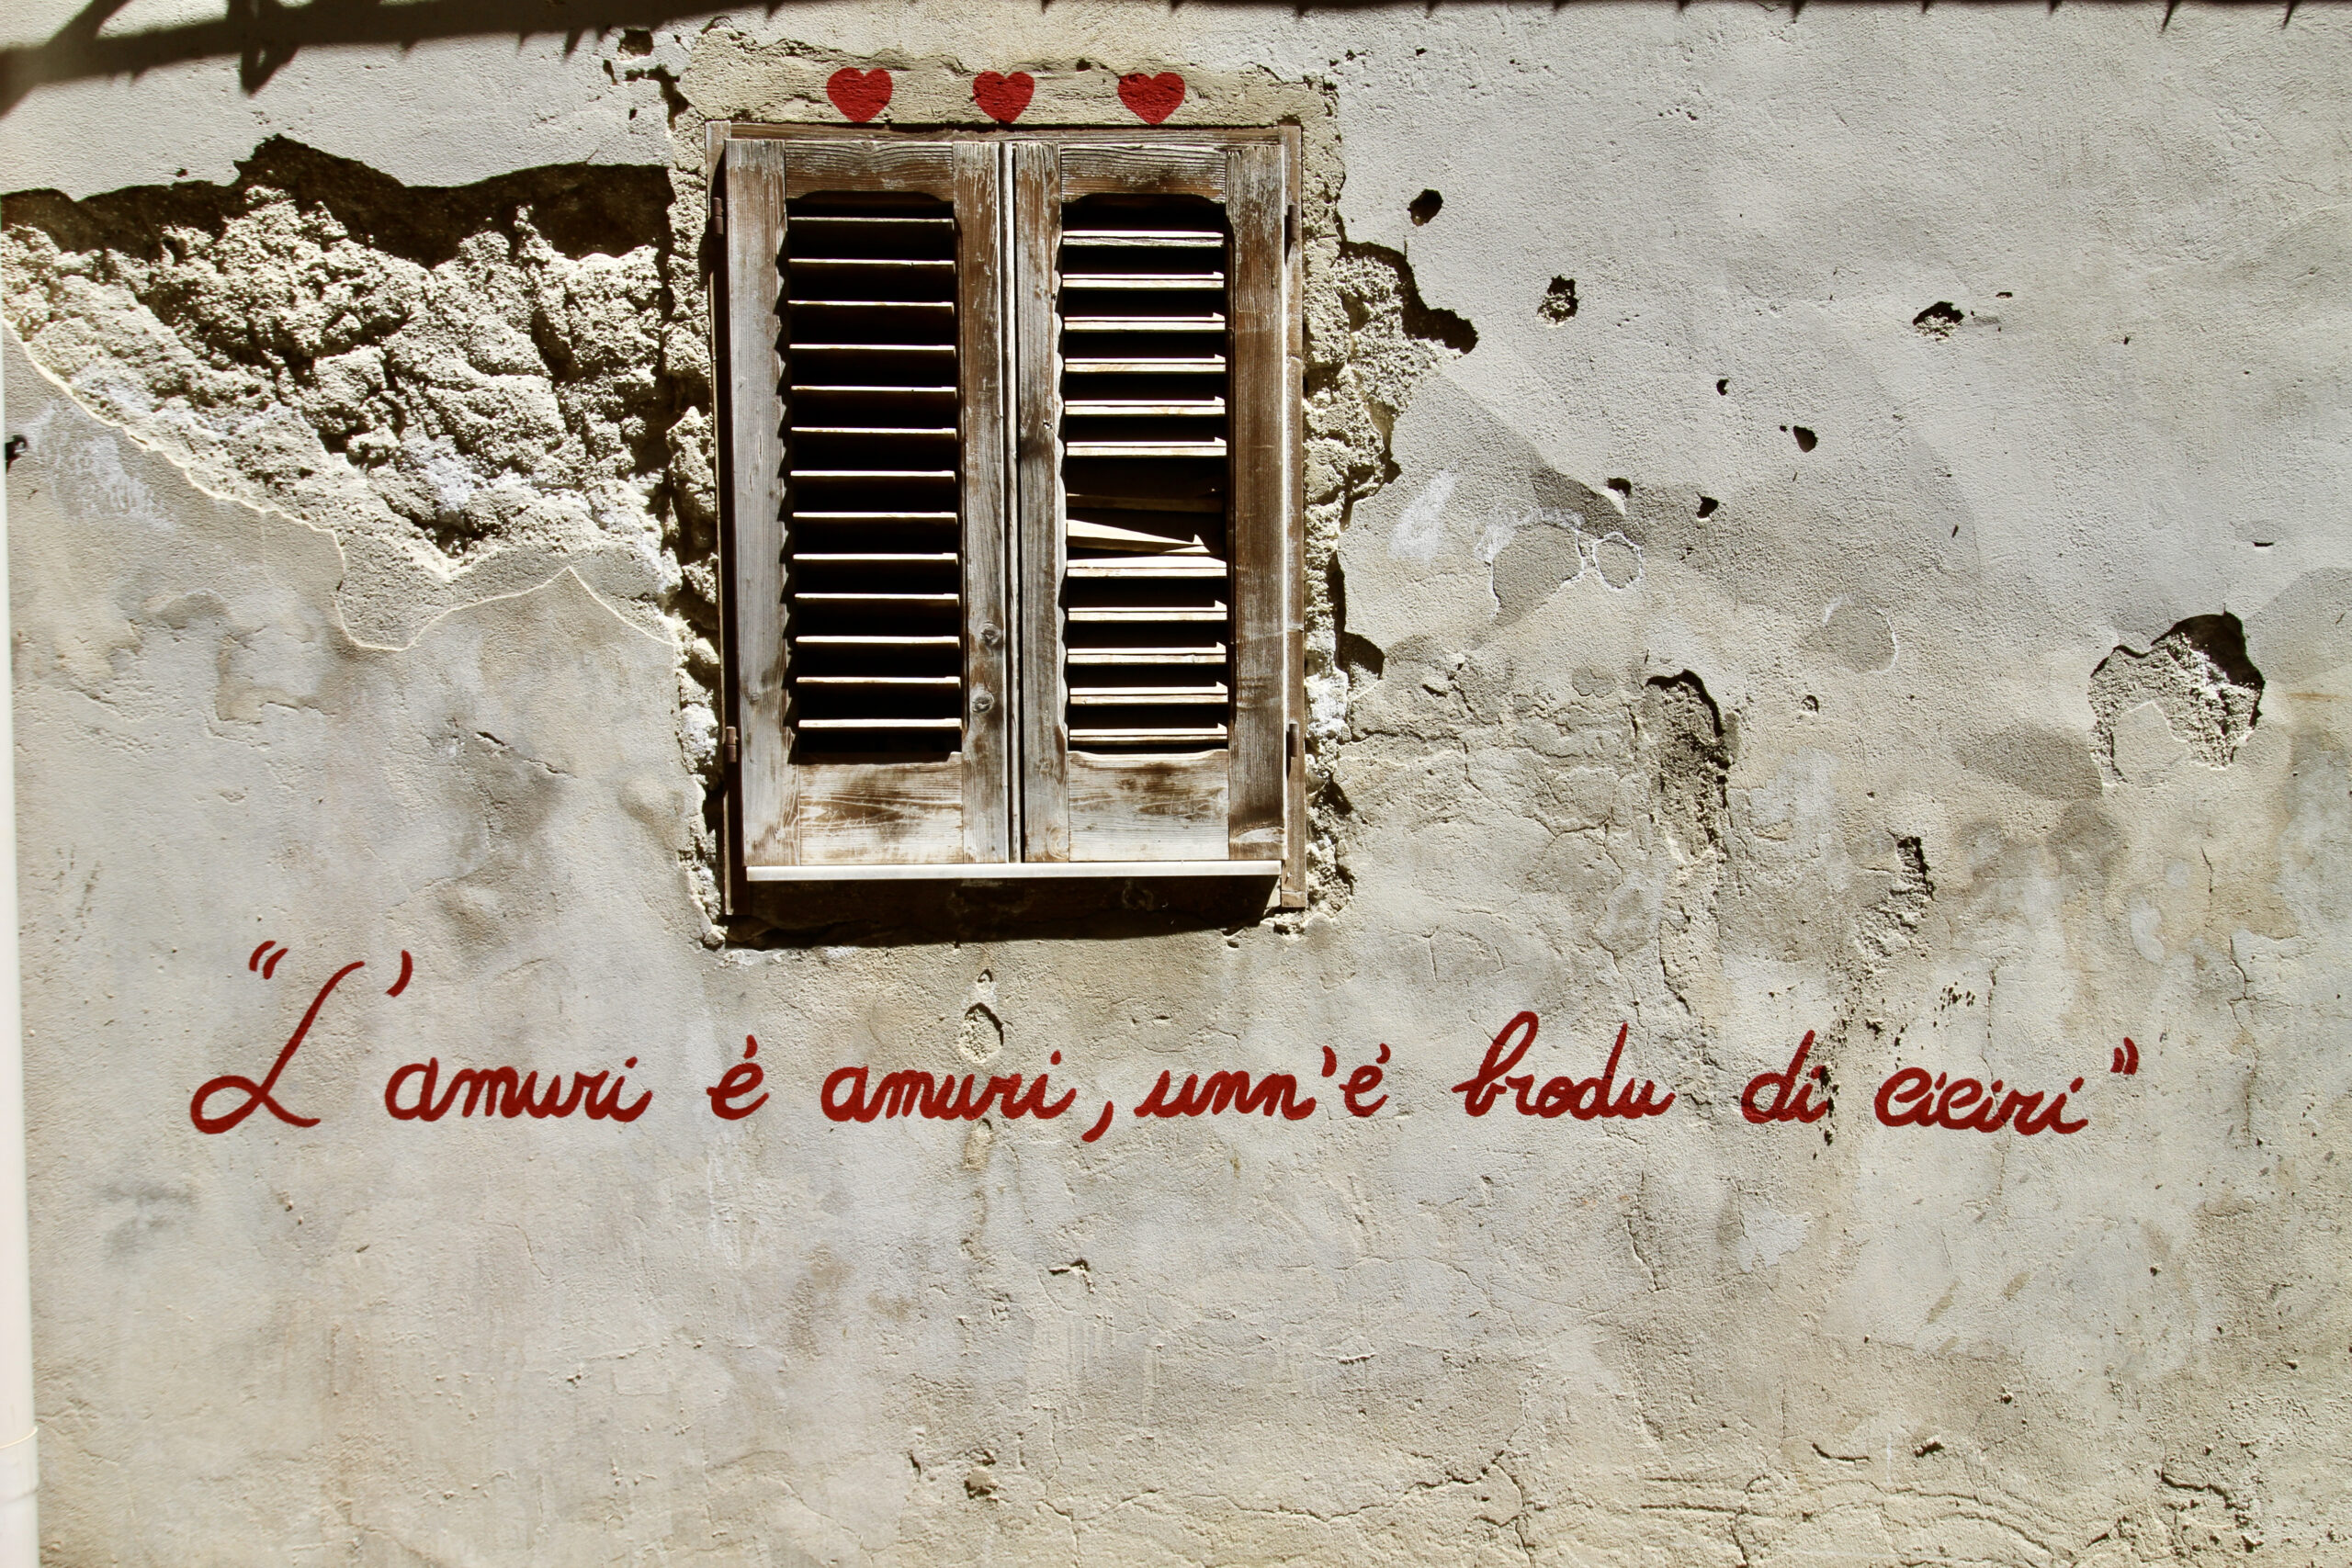 "L'amuri é amuri, unn'é brodu di ciciri"